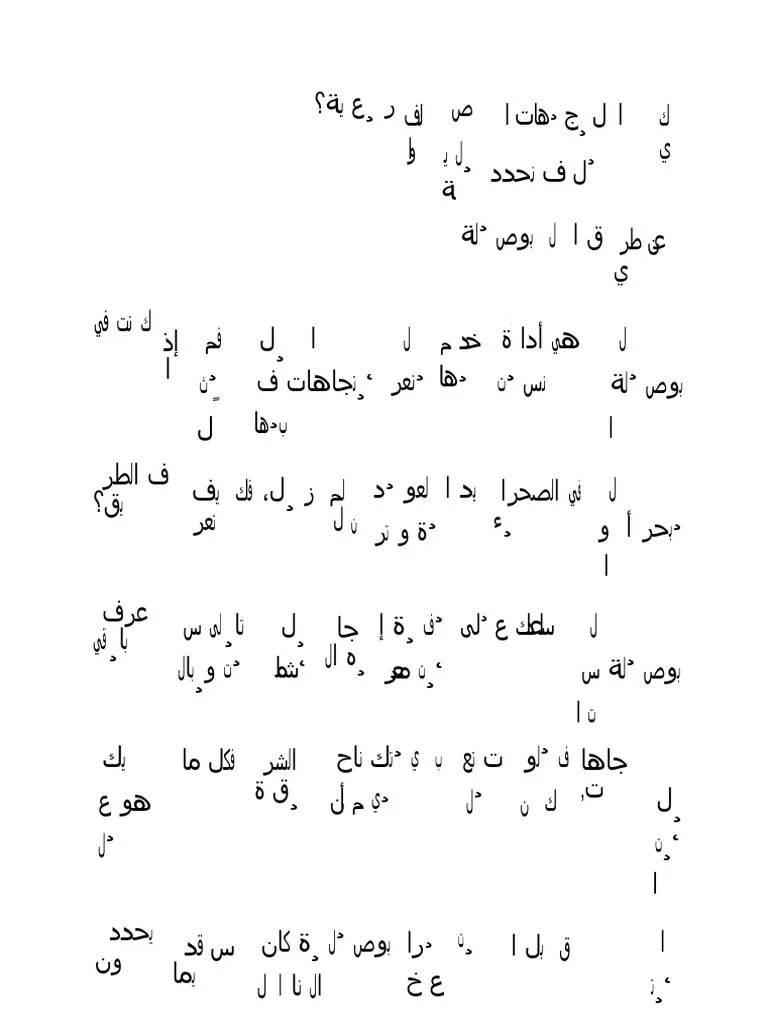 ك ا ل ج هات ا ص لف ر ع ية؟
ي ل ف نحدد ل ي وا
ة
عن طر ق ا ل بوص لة
ي
ل هي أداة خد م ل ا ل فم إذ ك نت في
بوص لة نس ن ها نعر تجاهات ف ن ا
ا بها ل
ل في الصحرا يد ا لعو د لم ز ل، فك يف ف الطر
بحر أ و ء ة و تر ن ل تعر يق؟
ا
ل ساعدك ع لى ف ة إ جا ل تا لى س عرف
بوص لة س ن هر ه ال شط ن و بال با قي
ن ا
جاها ف لو ت نع ب ي تك ناح الشر فكل ما يك
ل ت، ك ن ل ي م أن ق ة هو ع
ن ل
ا
ا ق بل ا ن را بوص ل ة كان س قد يحدد
ت ع خ ال نا ا ل يما ون